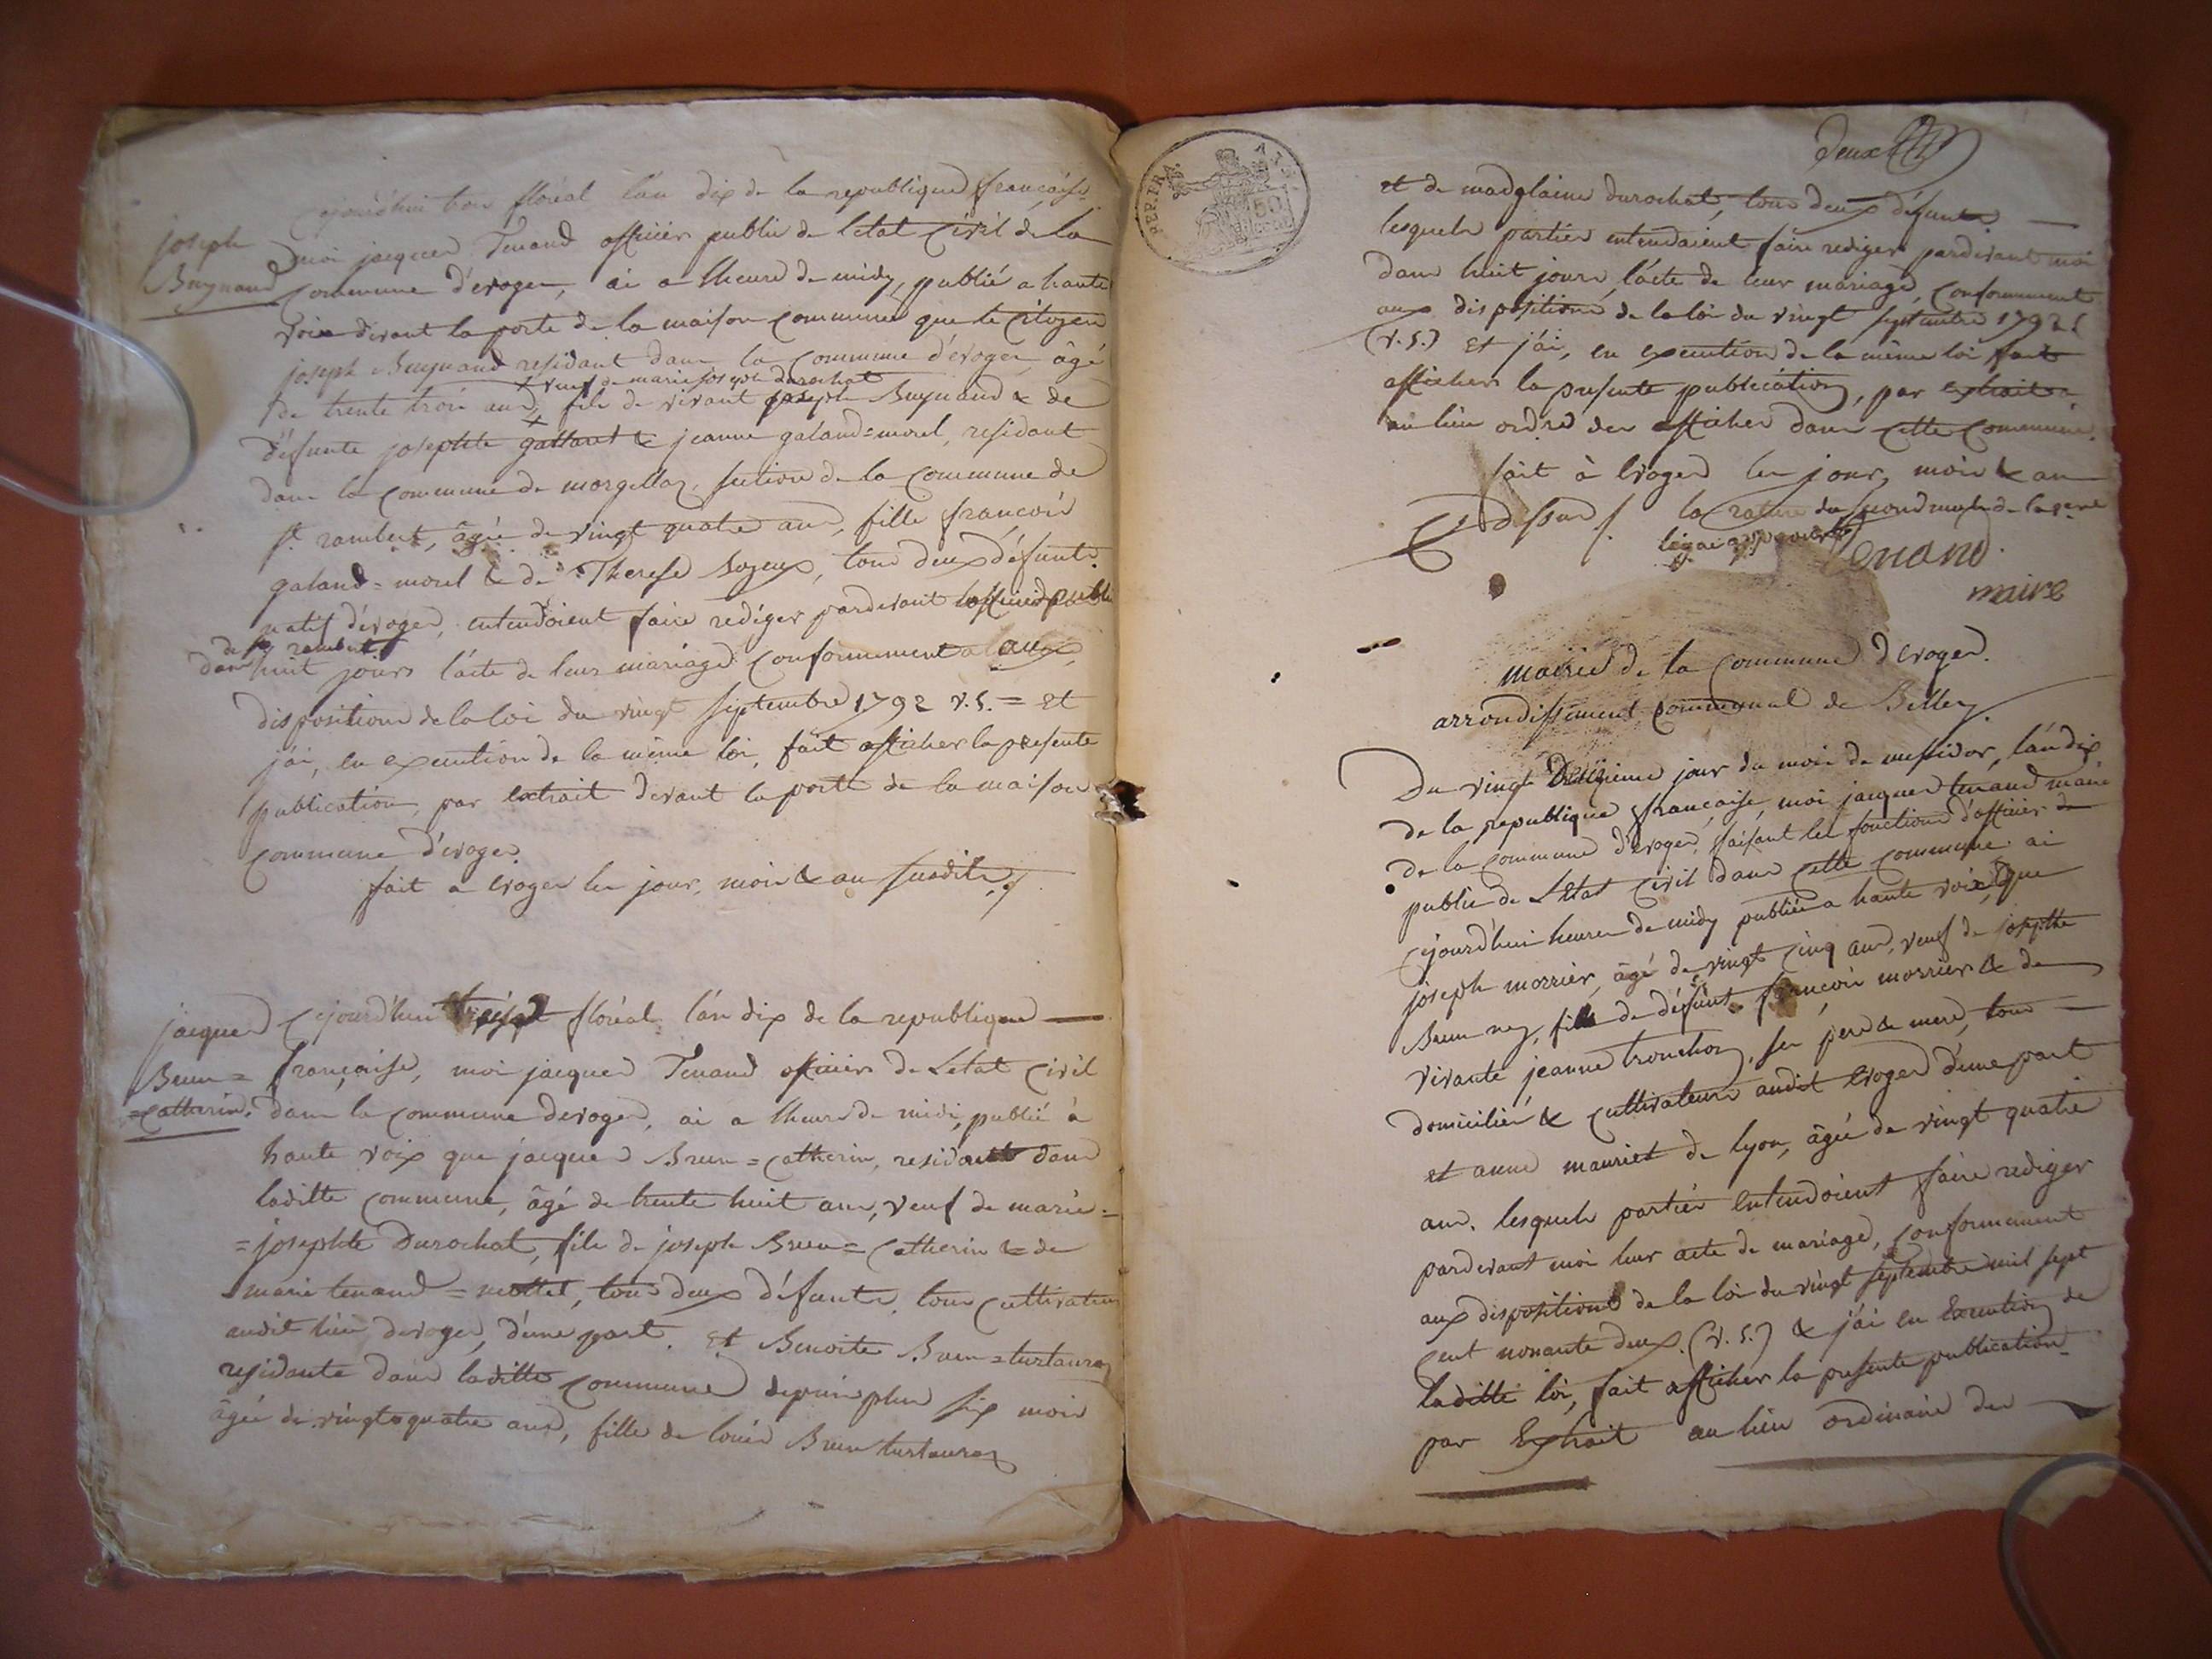 cejourd'hui trois floréal l'an dix de la republique française
joseph
Buynand
moi jacques Tenand officier public de letat civil de la
commune d'evoges, ai a lheure de midy, publié a haute
voix devant la porte de la maison commune que le citoyen
joseph Buynand residant dans la commune d'évoges âgé
+ veuf de marie josephe durochat
de trente trois ans, fils de vivant joseph Buynand & de
défunte josephte galland & jeanne galand=morel, residant
dans la commune de morgellaz, section de la commune de
st. rambert, âgée de vingt quatre ans, fille francois
galand=morel & de Therese Bozeux, tous deux défunts.
natif d'évoges, entendoient faire rediger pardevant lofficier public
de st rambert
dans huit jours l'acte de leur mariage conformement aux
dispositions de la loi du vingt septembre 1792 v.s. = Et
j'ai, en execution de la même loi, fait afficher la presente
publication, par extrait devant la porte de la maison
commune d'evoges.
fait a evoges les jour, mois & an susdits./.
jacques
Brun=
=catherin.
Cejourd'hui floréal l'an dix de la republique
française, moi jacques Tenand officier de Letat civil
dans la commune devoges, ai a lheure de midi, publié à
haute voix que jacques Brun=catherin, residant dans
laditte commune, âgé de trente huit ans, veuf de marie=
=josephte Durochat, fils de joseph Brun=catherin & de
marie tenand=mottet, tous deux défunts, tous cultivateurs
audit lieu devoges, d'une part. Et Benoite Brun=turtauraz
residante dans laditte commune depuis plus six mois
âgée de vingt quatre ans, fille de louis Brun turtauraz
deux
REP. FRA.
50
et de madglaine durochat, tous deux défunts
lesquels parties entendaient faire rediger pardevant moi
dans huit jours, l'acte de leur mariage, conformement
aux dispositions de la loi du vingt septembre 1792
(v.s.) Et j'ai, en execution de la même loi fait
afficher la presente publication, par extrait
au lieu ordre des affiches dans cette commune.
fait à Evoges les jour, mois & an
Cy dessus /. la rature du second mot de la
ligne approuvée
Tenand
maire
mairie de la commune d'evoges.
arrondissement communal de Belley.
Du vingt jour du mois de messidor, l'an dix
de la republique française, moi jacques tenand maire
de la commune d'evoges, faisant les fonctions d'officier
public de L'Etat civil dans cette commune ai
cejourd'hui heure de midy publié a haute voix, que
joseph morrier, âgé de vingt cinq ans, veuf de josephte
Brun ney, fils de défunt françois morrier & de
vivante jeanne tronchon, ses pere & mere, tous
domiciliés & cultivateurs audit Evoges d'une part
et anne mauriet de lyon, âgée de vingt quatre
ans. lesquels parties entendoient faire rediger
pardevant moi leur acte de mariage, conformement
aux dispositions de la loi du vingt septembre mil sept
cent nonante deux. (v.s.) & j'ai en execution de
laditte loi, fait afficher la presente publication
par Extrait au lieu ordinaire des